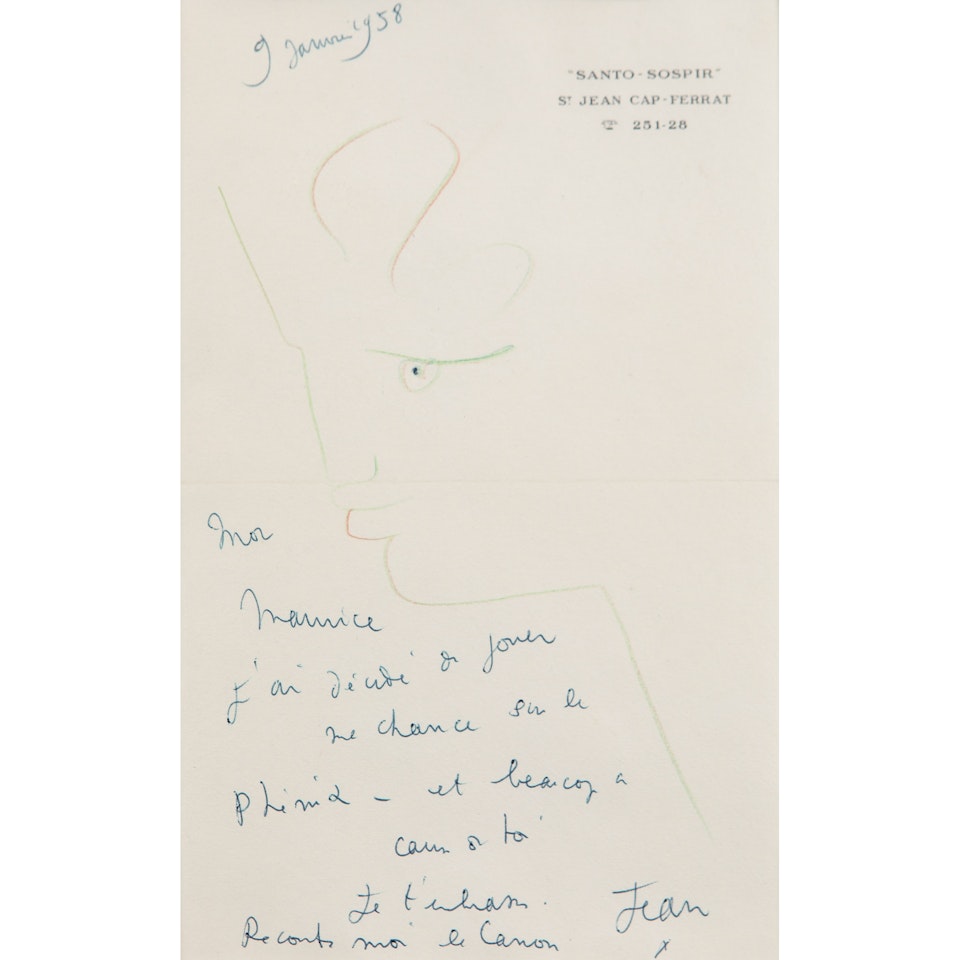 9 Janvier 1958
"SANTO-SOSPIR"
ST JEAN CAP-FERRAT
☎ 251-28
Mon
Maurice
J'ai décidé de jouer
ma chance sur le
Phénix – et beaucoup a
cause de toi
Je t'embrasse.
Jean
Raconte moi le Canon